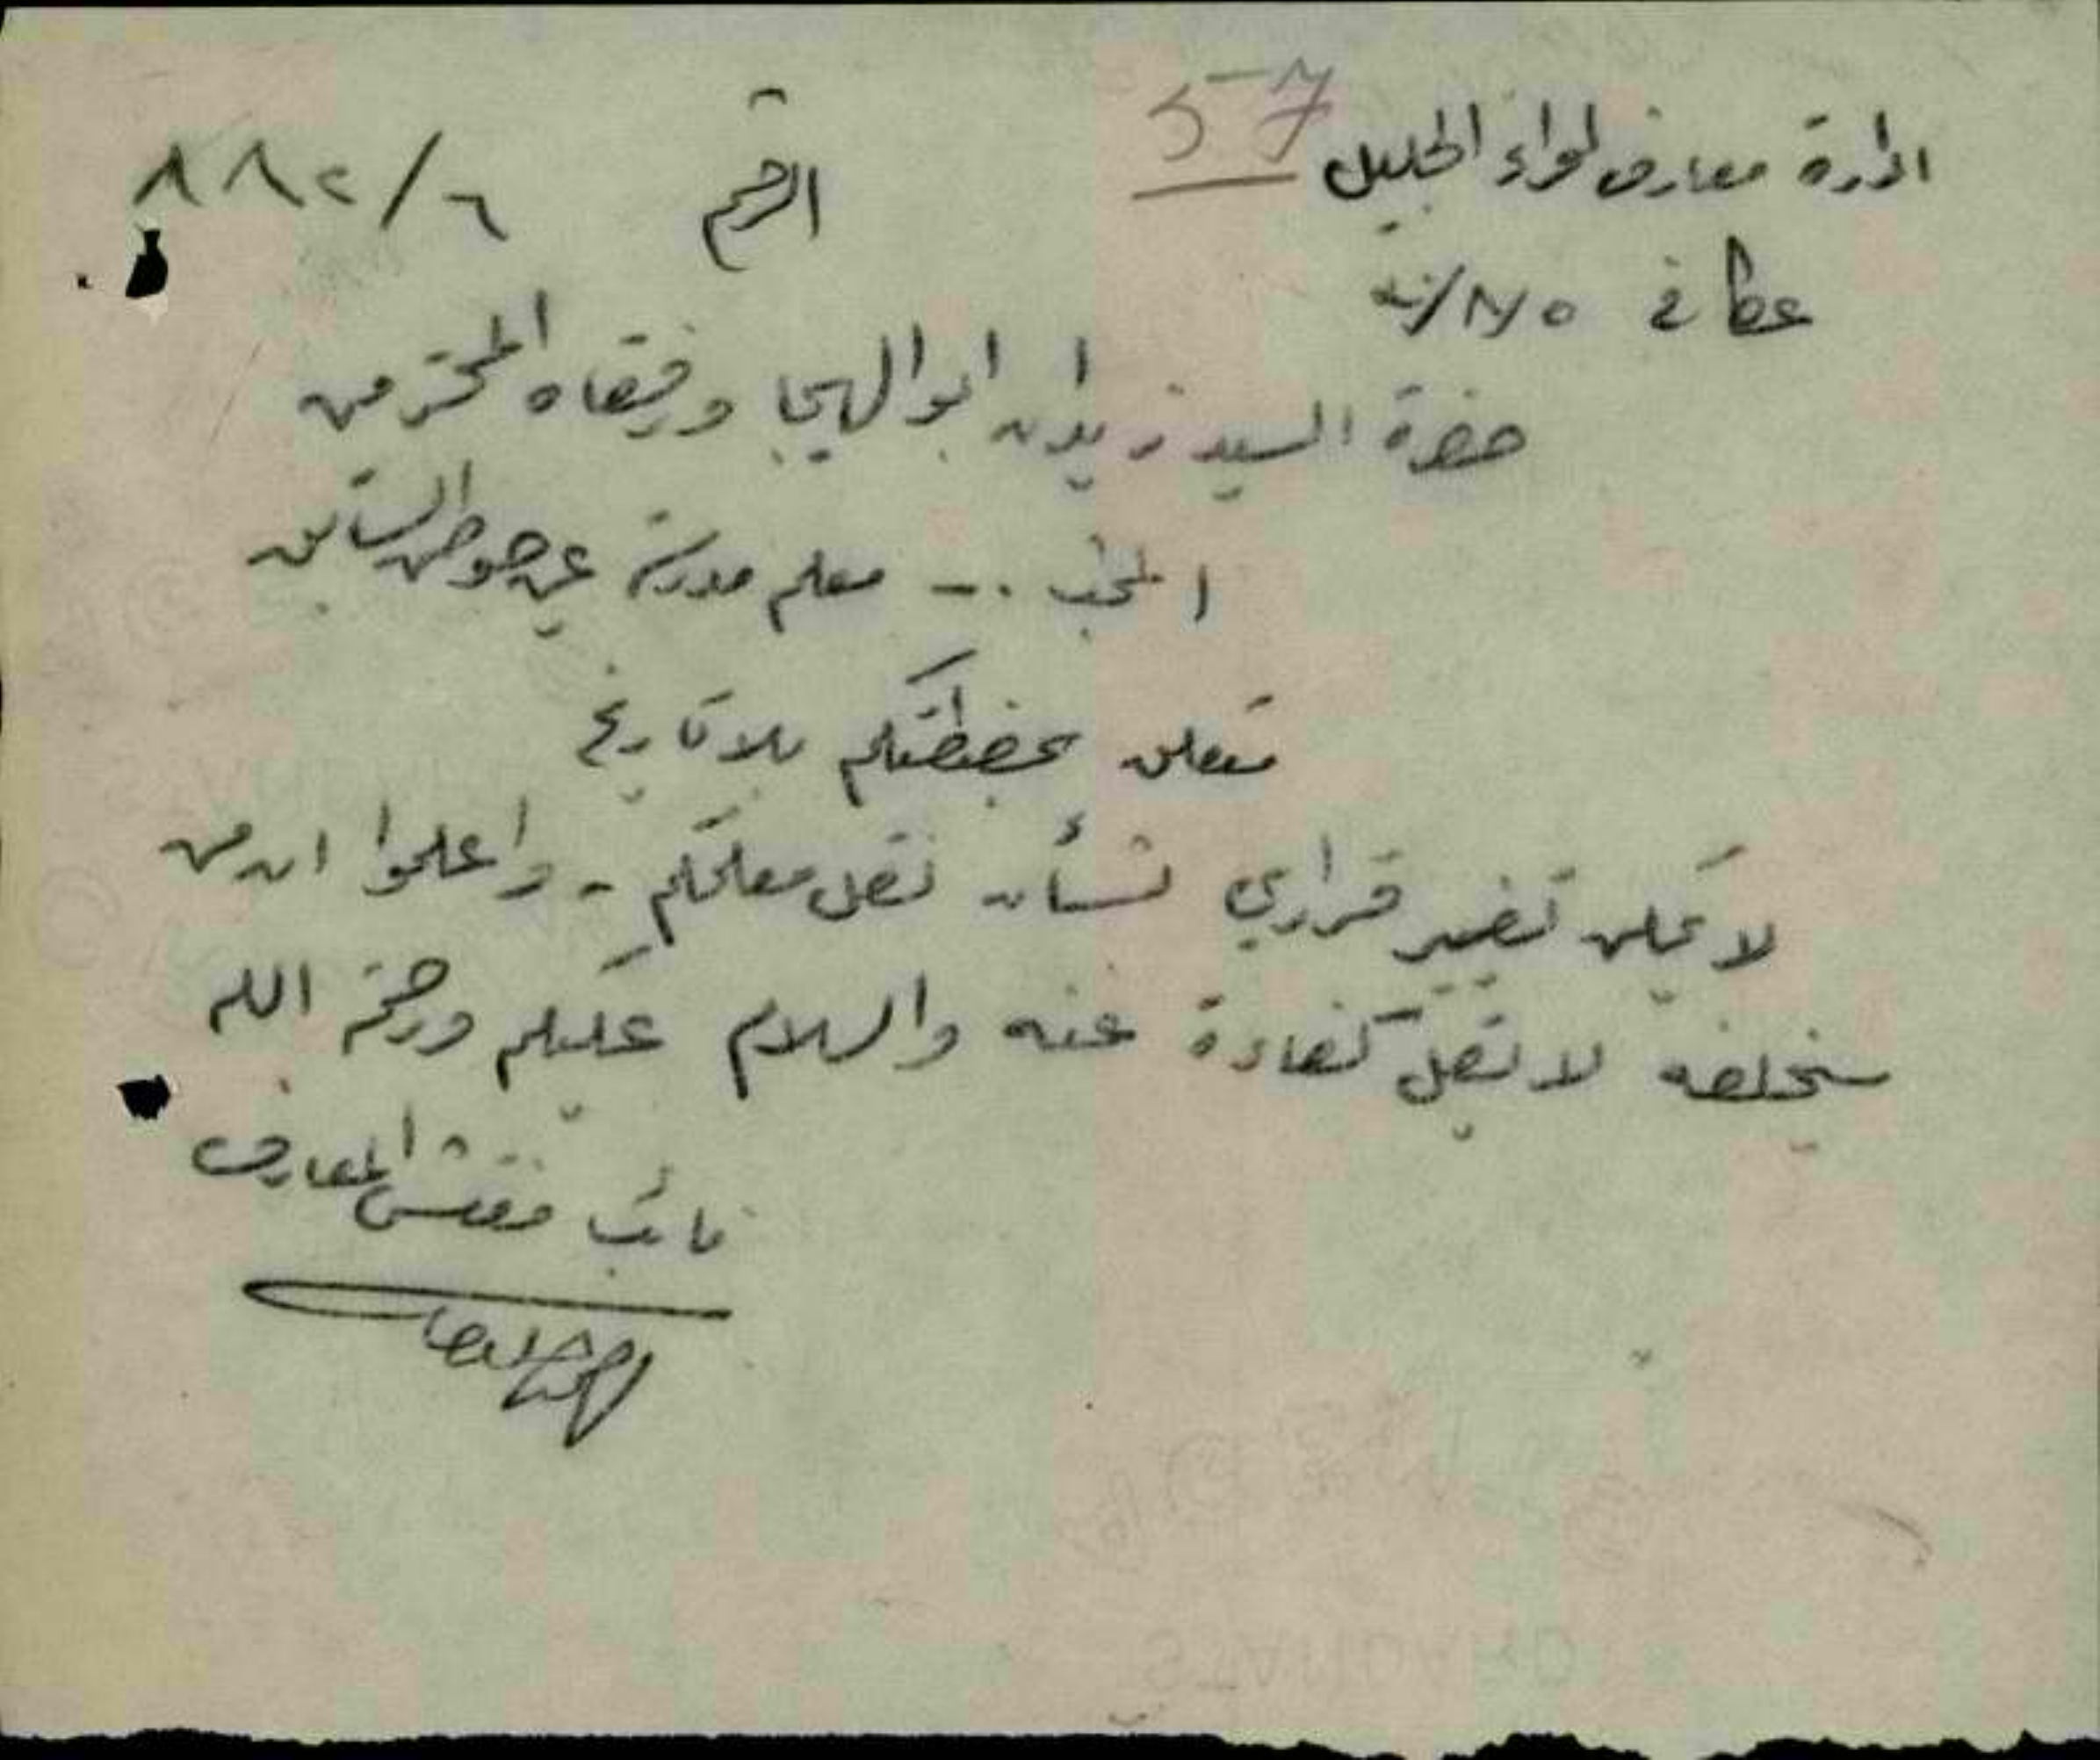 57
ادارة معارف لواء الجليل
الرقم ٨٨٢/٦
عكا في
حضرة السيد زيدان ابو الهيجا ورفيقاه المحترمين
معلم مدرسة عين حوض السابق
تتعلق بمضبطتكم بلا تاريخ
لا يمكن تغيير قراري بشأن نقل معلمكم - واعلموا ان من
سيخلفه لا تقل كفاءة عنه والسلام عليكم ورحمة الله
نائب مفتش المعارف